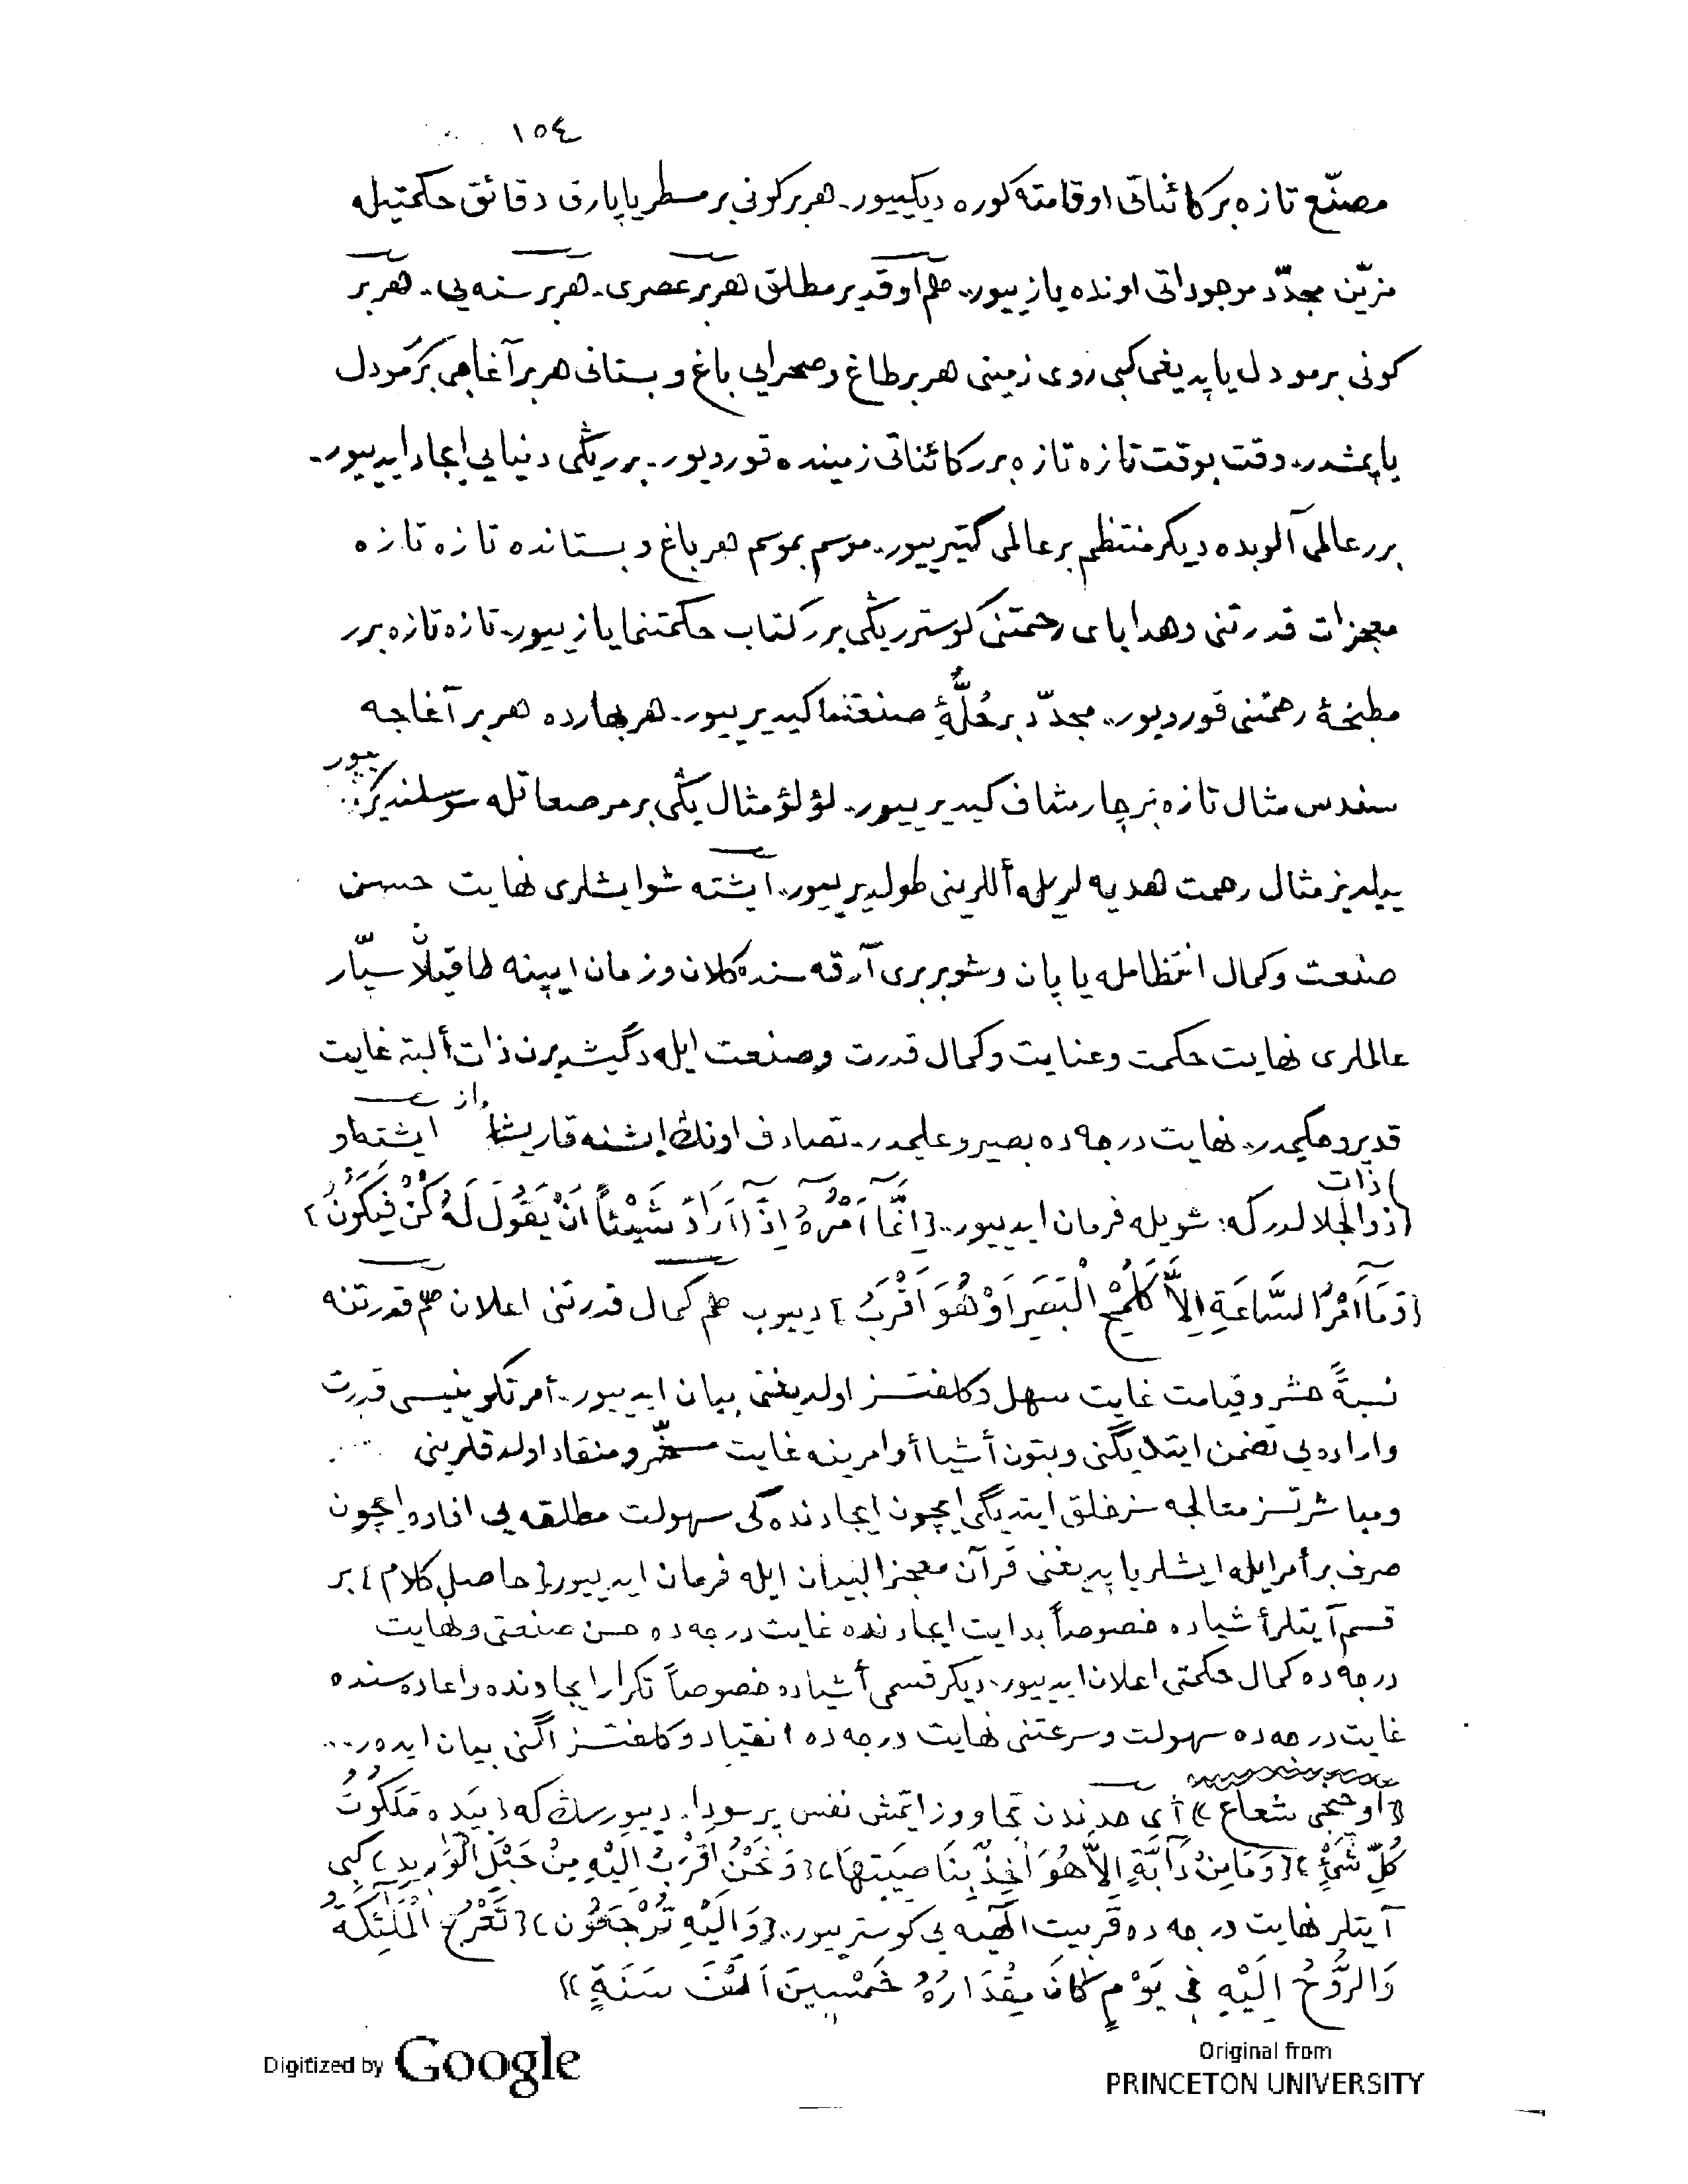 ١٥٤
مصنّع تازه بر كائناتى او قامته كوره ديكييور. هر بر كونى بر مسطر ياپارق دقائق حكمتيله
مزيّن مجدّد موجوداتى اونده يازييور. هم او قدير مطلق هر بر عصرى. هر بر سنه يى. هر بر
كونى بر مودل ياپديغى كبى روى زمينى هر بر طاغ و صحرايى باغ و بستانى هر بر آغاجى بر مودل
ياپمشدر. وقت بوقت تازه تازه برر كائناتى زمينده قورديور. برر يڭى دنيايى ايجاد ايدييور.
برر عالمى آلوبده ديكر منتظم بر عالمى كتيرييور. موسم بموسم هر باغ و بستانده تازه تازه
معجزات قدرتنى و هداياى رحمتنى كوسترر يڭى برر كتاب حكمتنما يازييور. تازه تازه برر
مطبخۀ رحمتنى قورديور. مجدّد بر حُلّۀِ صنعتنما كيديرييور. هر بهارده هر بر آغاجه
سندس مثال تازه بر چارشاف كيديرييور. لؤلؤ مثال يڭى بر مرصعاتله سوسلنديرييور
ييلديز مثال رحمت هديه لريله أللرينى طولديرييور. ايشته شو ايشلرى نهايت حسن
صنعت و كمال انتظامله ياپان و شو بربرى آرقه سنده كلان و زمان ايپينه طاقيلان سيّار
عالملرى نهايت حكمت و عنايت و كمال قدرت و صنعت ايله دگيشديرن ذات ألبته غايت
قدير و حكيمدر. نهايت درجه ده بصير و عليمدر. تصادف اونڭ ايشنه قاريشاماز ايشته او
ذات
ذوالجلالدركه: شويله فرمان ايدييور. {اِنَّمَا اَمْرُهُ اِذَا اَرَادَ شَيْئًا اَنْ يَقُولَ لَهُ كُنْ فَيَكُونُ}
{وَمَا اَمْرُ السَّاعَةِ اِلاَّ كَلَمْحِ الْبَصَرِ اَوْ هُوَ اَقْرَبُ} دييوب هم كمال قدرتنى اعلان هم قدرتنه
نسبةً حشر و قيامت غايت سهل و كلفتسز اولديغنى بيان ايدييور. أمر تكوينيسى قدرت
و اراده يى تضمن ايتديگنى و بتون أشيا أوامرينه غايت مسخّر و منقاد اولدقلرينى
و مباشرتسز معالجه سز خلق ايتديگى ايچون ايجادنده كى سهولت مطلقه يى افاده ايچون
صرف بر أمر ايله ايشلر ياپديغنى قرآن معجزالبيان ايله فرمان ايدييور {حاصل كلام} بر
قسم آيتلر أشياده خصوصاً بدايت ايجادنده غايت درجه ده حسن صنعتى و نهايت
درجه ده كمال حكمتى اعلان ايدييور. ديكر قسمى أشياده خصوصاً تكرار ايجادنده و اعاده سنده
غايت درجه ده سهولت و سرعتنى نهايت درجه ده انقياد و كلفتسزلگنى بيان ايدر...
«اوچنجى شعاع» أى حدندن تجاوز ايتمش نفس پر سودا. دييورسڭ كه {بِيَدِهِ مَلَكُوتُ
كُلِّ شَيْءٍ} {وَمَا مِنْ دَابَّةٍ اِلاَّ هُوَ اٰخِذٌ بِنَاصِيَتِهَا} {وَنَحْنُ اَقْرَبُ اِلَيْهِ مِنْ حَبْلِ الْوَرِيدِ} كبى
آيتلر نهايت درجه ده قربيت الٰهيه يى كوسترييور. {وَاِلَيْهِ تُرْجَعُونَ} {تَعْرُجُ الْمَلٰئِكَةُ
وَالرُّوحُ اِلَيْهِ فِى يَوْمٍ كَانَ مِقْدَارُهُ خَمْسِينَ اَلْفَ سَنَةٍ»
Digitized by Google
Original from
PRINCETON UNIVERSITY